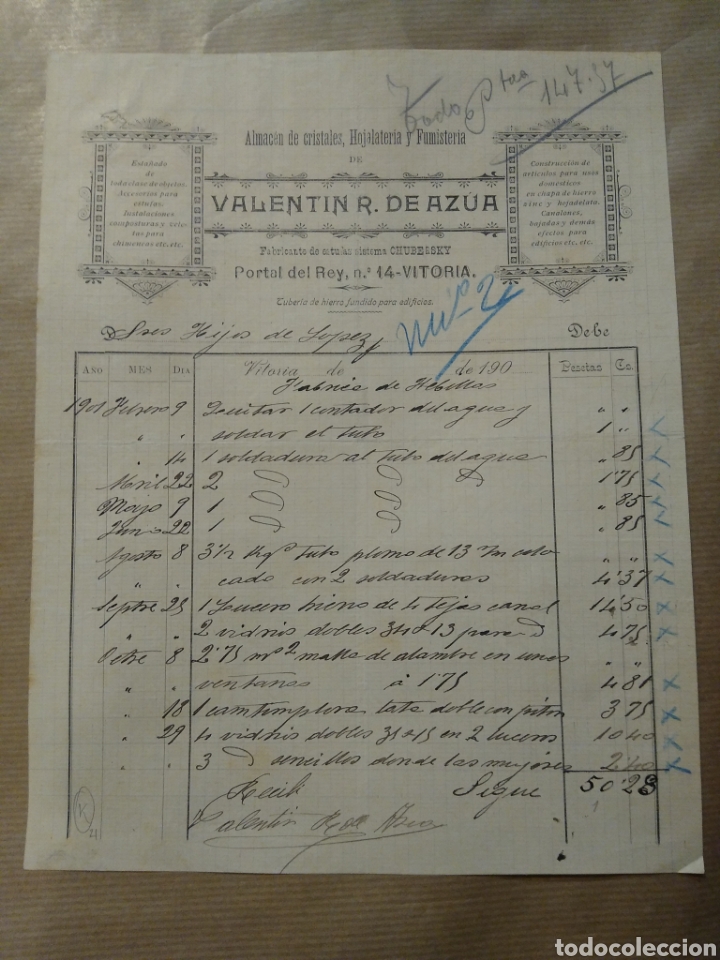 Todo Ptas 147.57
Almacén de cristales, Hojalatería y Fumistería
DE
VALENTIN R. DE AZÚA
Fabricante de estufas sistema CHUBERSKY
Portal del Rey, n.º 14-VITORIA.
Tubería de hierro fundido para edificios.
Estañado de
toda clase de objetos.
Accesorios para
estufas.
Instalaciones
composturas y
para
chimeneas etc. etc.
Construcción de
artículos para usos
domésticos
en chapa de hierro
zinc y hojadelata.
Canalones,
bajadas y demás
efectos para
edificios etc. etc.
nº 2
D Sres Hijos de Lopez Debe
AÑO MES DIA Vitoria de de 190 Pesetas Cs.
Fabrica de Hebillas
1901 Febrero 9 Quitar 1 contador del agua y " "
" " soldar el tubo 1 "
" 14 1 soldadura al tubo del agua " 85
Abril 22 2 1'75
Mayo 9 1 " 85
Junio 22 1 " 85
Agosto 8 3 1/2 Kgs tubo plomo de 13 m/m colo " "
" cado con 2 soldaduras 4'37
Septre 25 1 Lucero hierro de 4 tejas canal 14'50
" " 2 vidrios dobles 34 x 13 para 4'75
Octre 8 2'75 ms2 malla de alambre en unas " "
" " ventanas á 1'75 4 81
" 18 1 cantimplora lata doble con piton 3 75
" 29 4 vidrios dobles 35 x 15 en 2 luceros 10 40
" " 3 sencillos donde las mujeres 2'40
Recibí Sigue 50'28
Valentin R de Azua
K
21
todocoleccion